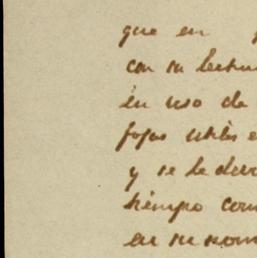 que en
con su lectu
en uso de
fojas utiles e
y se le dev
tiempo com
en su nom